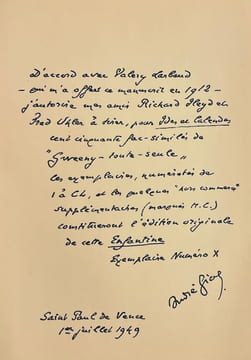 D'accord avec Valery Larbaud
– qui m'a offert ce manuscrit en 1912 –
j'autorise mes amis Richard Heyd et
Fred Uhler à tirer, pour Ides et Calendes
cent cinquante fac-similés de
"Gwenny-toute-seule"
les exemplaires, numérotés de
1 à CL, et les quelques "hors commerce"
supplémentaires (marqués H.C.)
constitueront l'édition originale
de cette Enfantine
Exemplaire Numéro X
André Gide
Saint Paul de Vence
1er juillet 1949